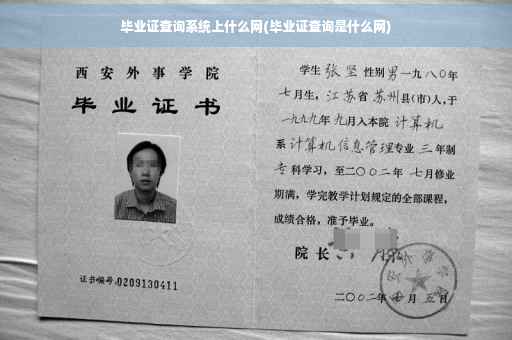 毕业证查询系统上什么网(毕业证查询是什么网)
西安外事学院
毕业证书
证书编号:0209130411
学生 张坚 性别男 一九八〇年
七月生，江苏省苏州县(市)人,于
一九九九年九月入本院 计算机
系计算机信息管理专业 三年制
专科学习，至二〇〇二年七月修业
期满，学完教学计划规定的全部课程，
成绩合格，准予毕业。
院长
二〇〇二年 月五日